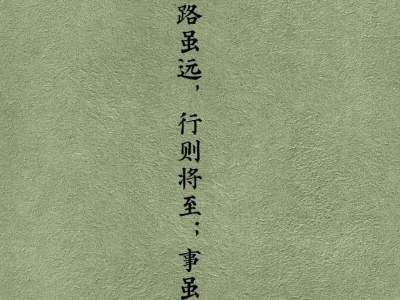 路虽远，行则将至；事虽